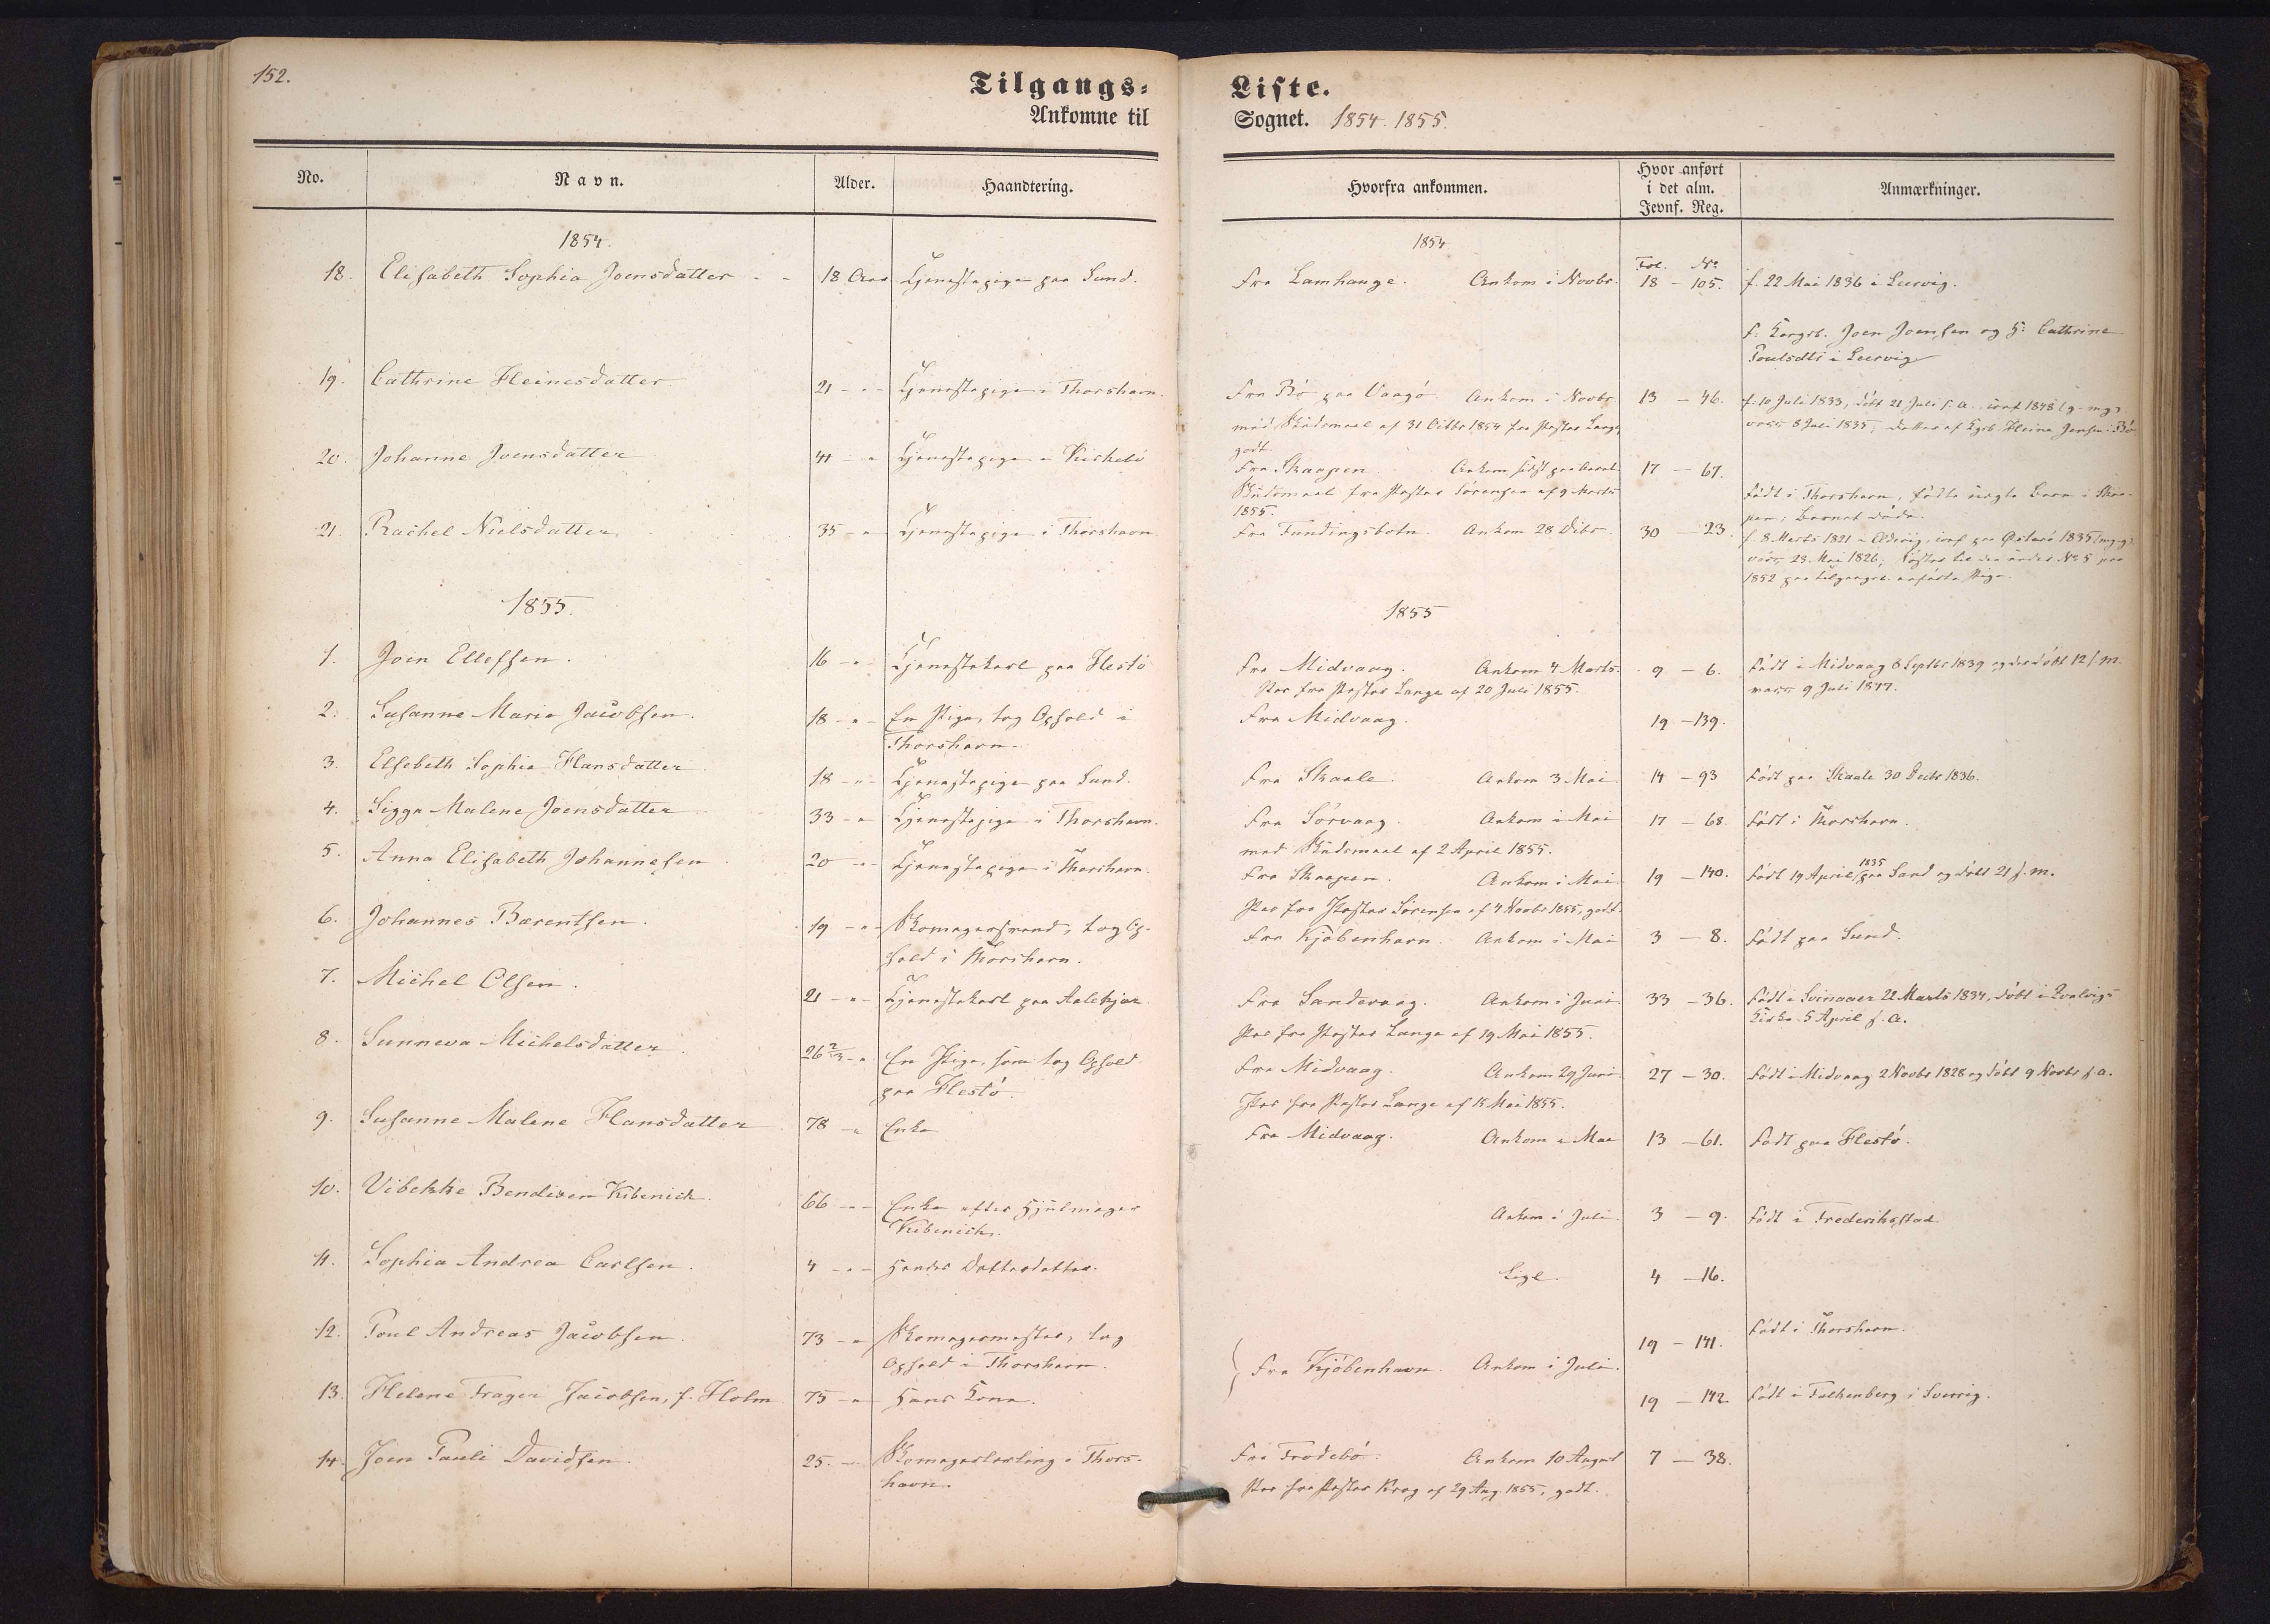 152.
Tilgangs-
Liste.
Ankomne til
Sognet. 1854. 1855.
No.
Navn.
Alder.
Haandtering.
Hvorfra ankommen.
Hvor anført
i det alm.
Jevnf. Reg.
Anmærkninger.
1854.
1854.
Fol. No
18. Elisabeth Sophia Joensdatter 18 Aar Tjenestepige paa Sund. Fra Lamhauge. Ankom i Novbr. 18 - 105. f. 22 Mai 1836 i Leervig.
Joen Joensen og H: Cathrine
Poulsdtr i Leervig
19. Cathrine Heinesdatter 21 - " - Tjenestepige i Thorshavn. Fra Bø paa Vaagø. Ankom i Novbr 13 - 46. f. 10 Juli 1833, døbt 21 Juli s. a., conf 1848
med Skudsmaal af 31 Octbr 1854 fra Pastor Lange,
godt.
vacc 8 Juli 1835, Datter af Heine Jensen i Bø
20. Johanne Joensdatter 41 - " Tjenestepige i Kirkebø Fra Skaapen. Ankom sidst paa Aaret 17 - 67.
Skudsmaal fra Pastor Sørensen af 9 Marts
1855.
Født i Thorshavn, fødte uægte Barn i Skaa-
pen; Barnet døde.
21. Rachel Nielsdatter 35 - " Tjenestepige i Thorshavn Fra Fundingsbotn. Ankom 28 Dcbr. 30 - 23. f. 8 Marts 1821 i conf paa Østerø 1835
vacc 23. Mai 1826, Søster til den under No 5 paa
1852 paa Tilgangsl. anførte Pige.
1855.
1855
1. Joen Ellefsen. 16 - " - Tjenestekarl paa Hestø Fra Midvaag. Ankom 4 Marts. 9 - 6. Født i Midvaag 8 Septbr 1839 og døbt 12 s. m.
Pas fra Pastor Lange af 20 Juli 1855.
vacc 9 Juli 1847.
2. Susanne Marie Jacobsen. 18 - " - En Pige, tog Ophold i
Thorshavn.
Fra Midvaag. 19 - 139.
3. Elsebeth Sophie Hansdatter. 18 - " - Tjenestepige paa Sund. Fra Skaale. Ankom 3 Mai 14 - 93 Født paa Skaale 30 Decbr 1836.
4. Sigga Malene Joensdatter 33 - " Tjenestepige i Thorshavn. Fra Sørvaag. Ankom i Mai 17 - 68. Født i Thorshavn.
med Skudsmaal af 2 April 1855.
5. Anna Elisabeth Johannesen. 20 - " - Tjenestepige i Thorshavn. Fra Skaapen. Ankom i Mai 19 - 140. Født 19 April 1835 paa Sand og døbt 21 s. m.
Pas fra Pastor Sørensen af 4 Novbr 1855, godt.
6. Johannes Bærentsen. 19 - " - Skomagersvend, tog Op-
hold i Thorshavn.
Fra Kjøbenhavn. Ankom i Mai 3 - 8. Født paa Sund.
7. Michel Olsen. 21 - " - Tjenestekarl paa Aalekjær Fra Sandevaag. Ankom i Juni 33 - 36. Født i Svinaaer 22 Marts 1834, døbt i Qvalvigs
Kirke 5 April s. a.
Pas fra Pastor Lange af 19 Mai 1855.
8. Sunneva Michelsdatter. 26 2/3 - " En Pige, som tog Ophold
paa Hestø.
Fra Midvaag. Ankom 29 Juni 27 - 30. Født i Midvaag 2 Novbr 1828 og døbt 9 Novbr s. a.
Pas fra Pastor Lange af 15 Mai 1855.
9. Susanne Malene Hansdatter 78 - " Enke Fra Midvaag. Ankom i Mai 13 - 61. Født paa Hestø.
10. Vibekke Bendixen Kibenich. 66 - " - Enke efter Hjulmager
Kibenich.
Ankom i Juli. 3 - 9. Født i Frederiksstad.
11. Sophia Andrea Carlsen. 4 - " - Hendes Datterdatter. Lige. 4 - 16.
12. Poul Andreas Jacobsen. 73 - " Skomagermester, tog
Ophold i Thorshavn.
19 - 141. Født i Thorshavn.
Fra Kjøbenhavn. Ankom i Juli.
13. Helene Trager Jacobsen, f. Holm 75 - " Hans Kone. 19 - 142. Født i Falkenberg i Sverrig.
14. Joen Pauli Davidsen. 25. - Skomagerlærling i Thors-
havn.
Fra Frodebø. Ankom 10 August 7 - 38.
Pas fra Pastor Krog af 29 Aug. 1855, godt.